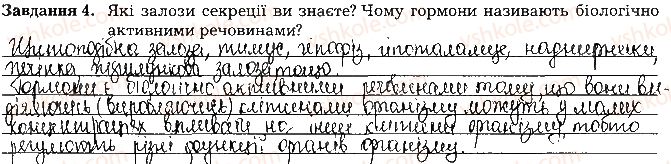 Завдання 4. Які залози секреції ви знаєте? Чому гормони називають біологічно
активними речовинами?
Щитоподібна залоза, тимус, гіпофіз, гіпоталамус, надниркники,
печінка, підшлункова залоза тощо.
Гормони є біологічно активними речовинами тому, що вони ви-
діляючись (виробляючись) клітинами організму можуть у малих
концентраціях впливати на інші клітини організму, тобто
регулюють різні функції органів організму.